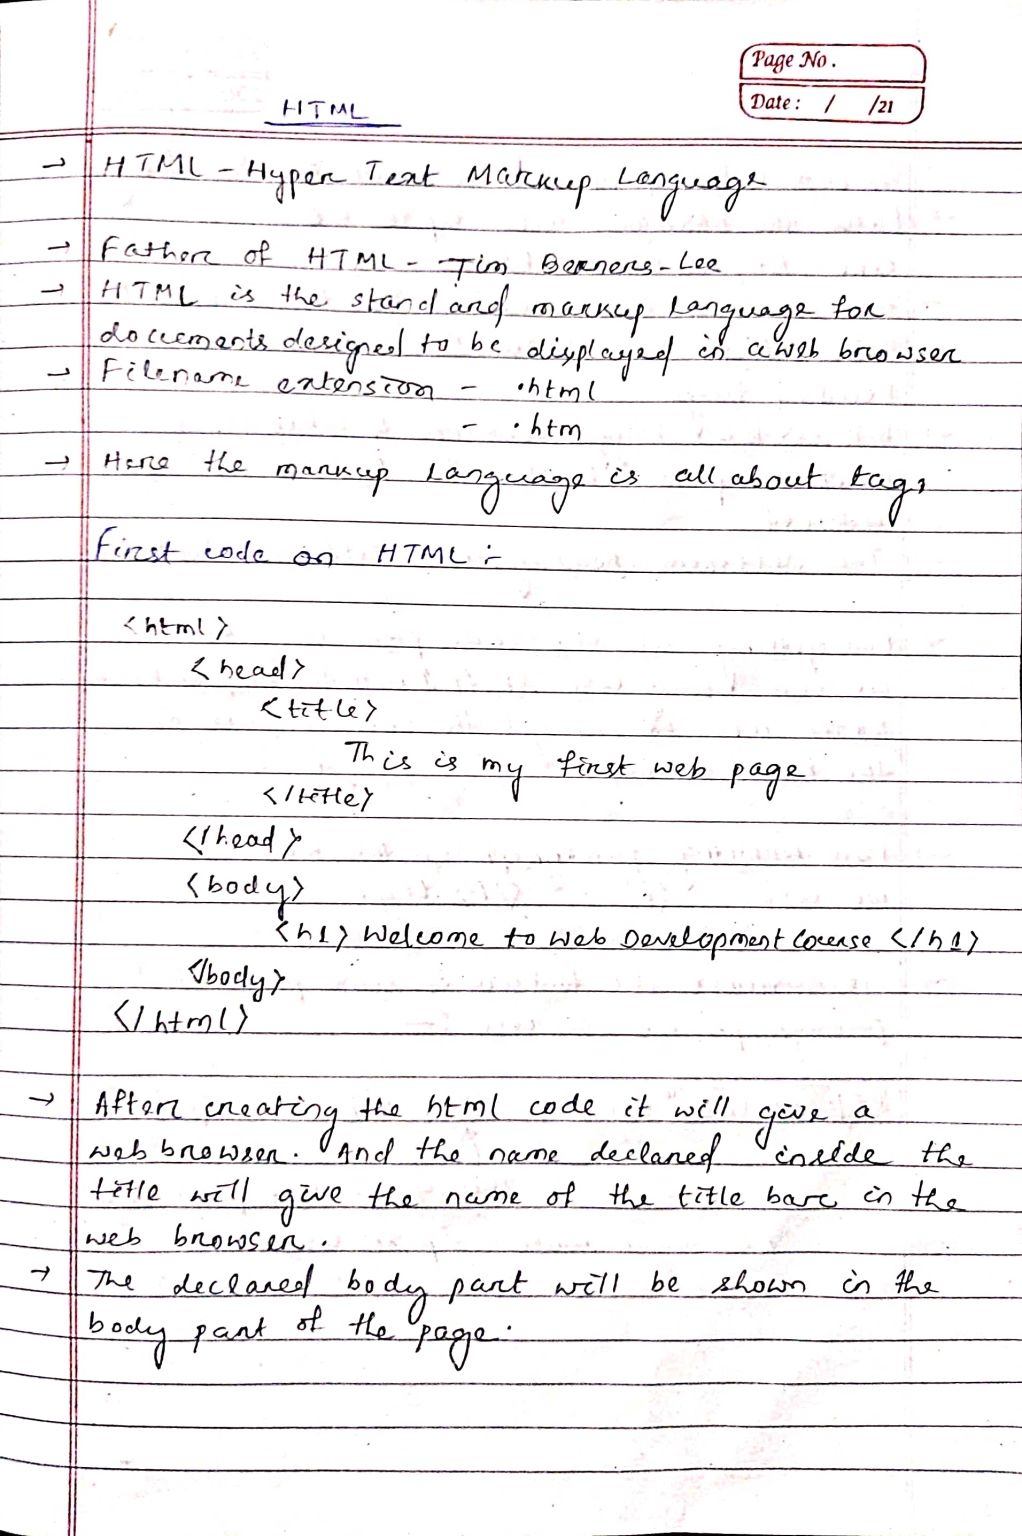 Page No.
Date: / /21
HTML
→ HTML - Hyper Text Markup Language
→ Father of HTML - Tim Berners-Lee
→ HTML is the standard markup language for
documents designed to be displayed in a web browser
→ Filename extension - .html
- .htm
→ Here the markup language is all about tags
First code on HTML :-
<html>
<head>
<title>
This is my first web page
</title>
</head>
<body>
<h1> Welcome to Web Development Course </h1>
</body>
</html>
→ After creating the html code it will give a
web browser. And the name declared inside the
title will give the name of the title bar in the
web browser.
→ The declared body part will be shown in the
body part of the page.